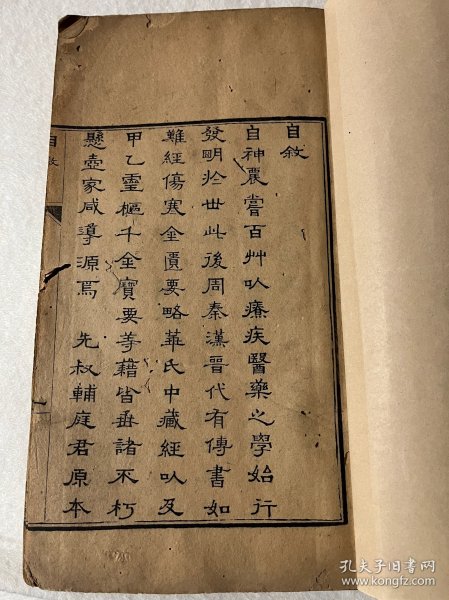 自敘
自神農嘗百艸㕥療疾醫藥之學始行
發明於世此後周秦漢晉代有傳書如
難經傷寒金匱要略華氏中藏經㕥及
甲乙靈樞千金寶要等籍皆垂諸不朽
懸壺家咸導源焉　先叔輔庭君原本
自敘
孔夫子旧书网
www.kongfz.com